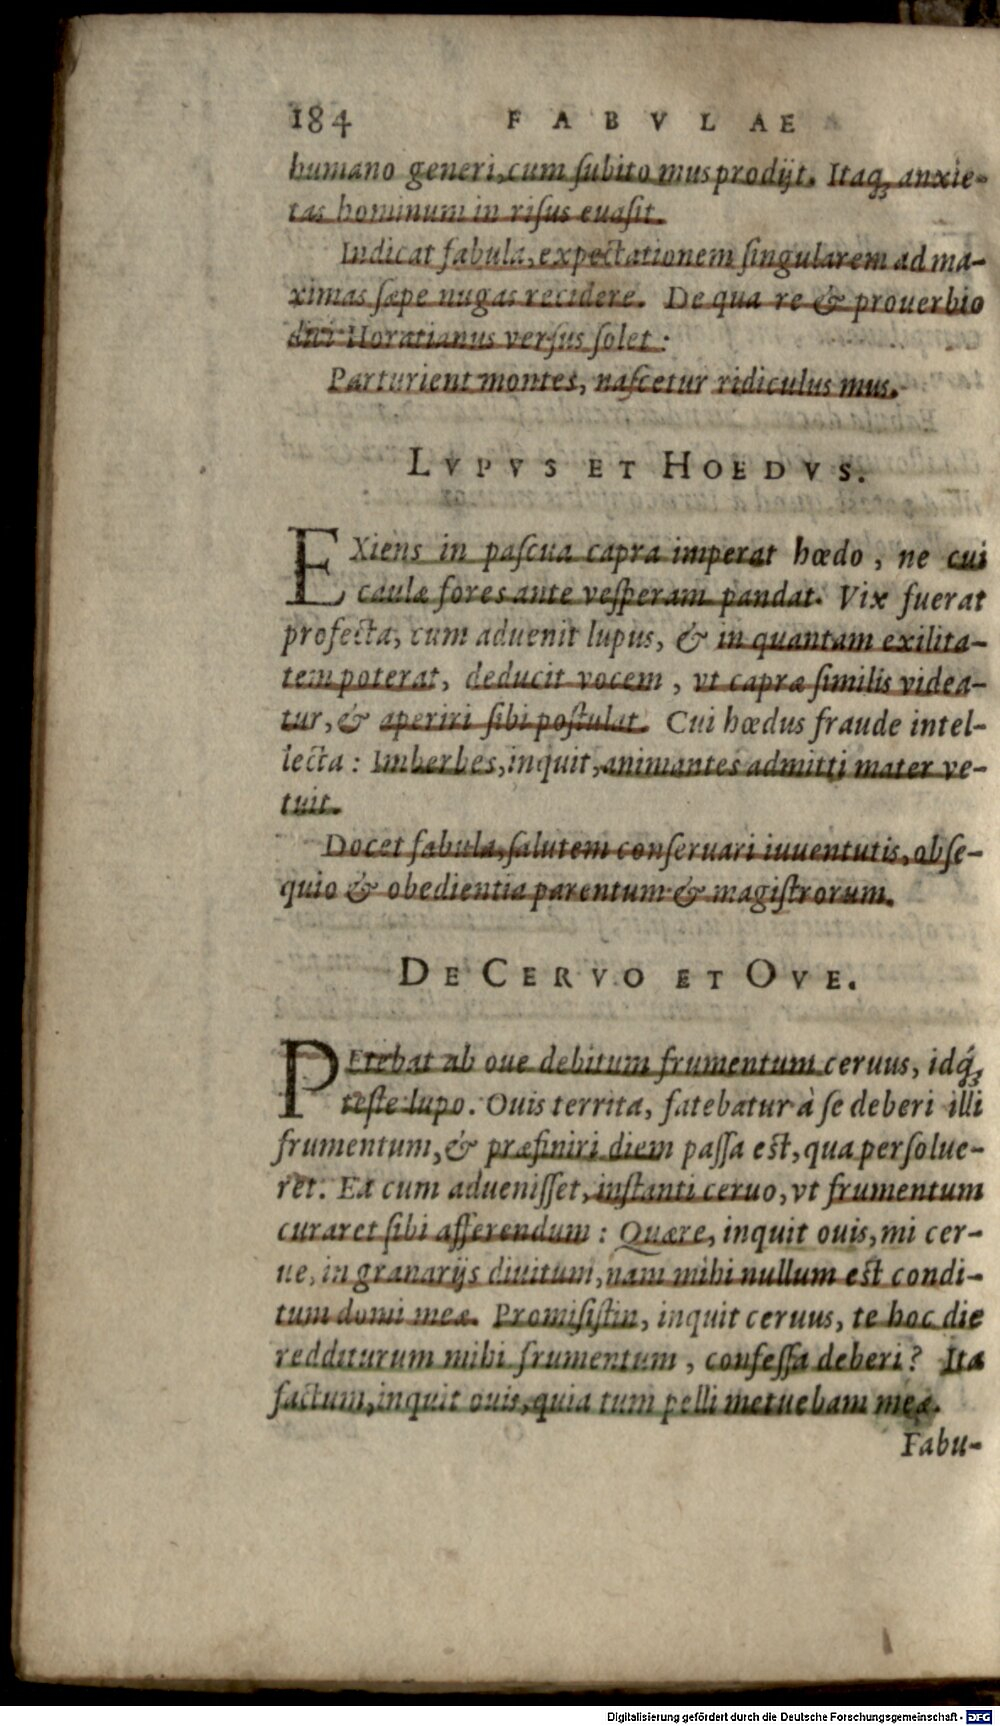 184 FABVLAE
humano generi, cum ſubito mus prodijt. Itaq;, anxie-
tas hominum in riſus euaſit.
Indicat fabula, expectationem ſingularem ad ma-
ximas ſæpe nugas recidere. De qua re & prouerbio
dici Horatianus verſus ſolet:
Parturient montes, naſcetur ridiculus mus.
LVPVS ET HOEDVS.
EXiens in paſcua capra imperat hœdo, ne cui
caulæ fores ante veſperam pandat. Vix fuerat
profecta, cum aduenit lupus, & in quantam exilita-
tem poterat, deducit vocem, vt capræ ſimilis videa-
tur, & aperiri ſibi poſtulat. Cui hœdus fraude intel-
lecta: Imberbes, inquit, animantes admitti mater ve-
tuit.
Docet fabula, ſalutem conſeruari iuuentutis, obſe-
quio & obedientia parentum & magiſtrorum.
DE CERVO ET OVE.
PEtebat ab oue debitum frumentum ceruus, idq́;
teſte lupo. Ouis territa, fatebatur à ſe deberi illi
frumentum, & præfiniri diem paſſa eſt, qua perſolue-
ret. Ea cum adueniſſet, inſtanti ceruo, vt frumentum
curaret ſibi afferendum: Quære, inquit ouis, mi cer-
ue, in granarijs diuitum, nam mihi nullum eſt condi-
tum domi meæ. Promiſiſtin, inquit ceruus, te hoc die
redditurum mihi frumentum, confeſſa deberi? Ita
factum, inquit ouis, quia tum pelli metuebam meæ.
Fabu-
Digitalisierung gefördert durch die Deutsche Forschungsgemeinschaft - DFG